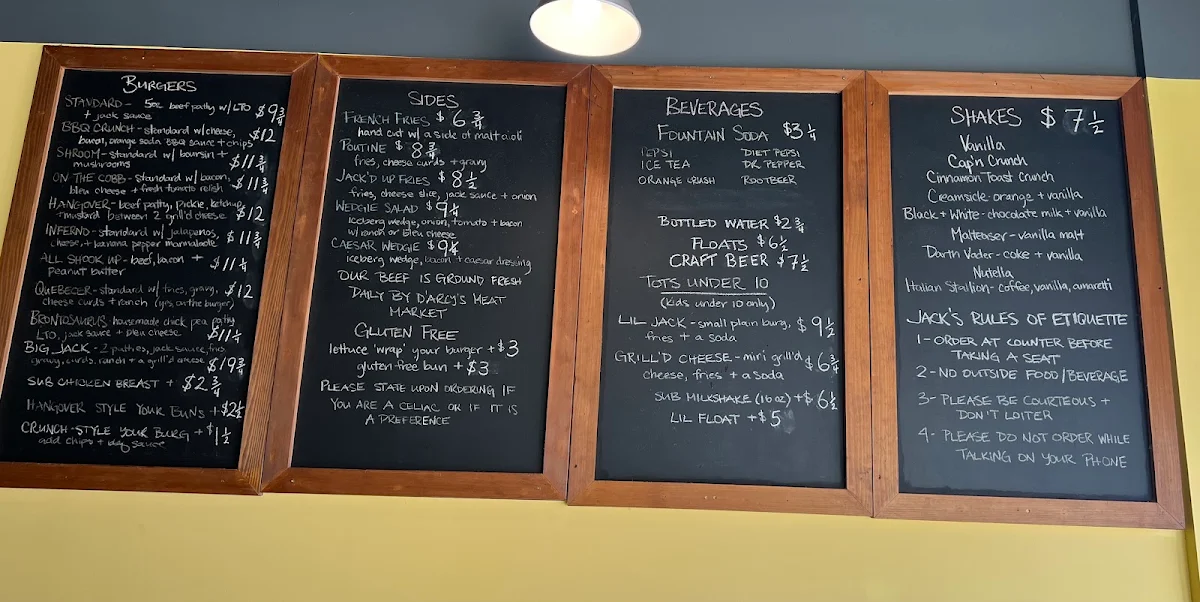 BURGERS
STANDARD - 5oz beef patty w/ LTO $9 3/4
+ jack sauce
BBQ CRUNCH - standard w/ cheese, $12
bacon, orange soda BBQ sauce + chips
SHROOM - standard w/ boursin + $11 3/4
mushrooms
ON THE COBB - standard w/ bacon, $11 3/4
bleu cheese + fresh tomato relish
HANGOVER - beef patty, pickle, ketchup $12
+ mustard between 2 grill'd cheese
INFERNO - standard w/ jalapenos, $11 3/4
cheese, + banana pepper marmalade
ALL SHOOK UP - beef, bacon + $11 1/4
peanut butter
QUEBECER - standard w/ fries, gravy, $12
cheese curds + ranch (yes, on the burger)
BRONTOSAURUS - housemade chick pea patty
LTO, jack sauce + bleu cheese $11 1/4
BIG JACK - 2 patties, jack sauce, fries
gravy, curds, ranch + a grill'd cheese $19 3/4
SUB CHICKEN BREAST + $2 3/4
HANGOVER STYLE YOUR BUNS + $2 1/2
CRUNCH-STYLE YOUR BURG + $1 1/2
add chips + bbq sauce
SIDES
FRENCH FRIES $6 3/4
hand cut w/ a side of malt aioli
POUTINE $8 3/4
fries, cheese curds + gravy
JACK'D UP FRIES $8 1/2
fries, cheese slice, jack sauce + onion
WEDGIE SALAD $9 1/4
iceberg wedge, onion, tomato + bacon
w/ ranch or bleu cheese
CAESAR WEDGIE $9 1/4
iceberg wedge, bacon + caesar dressing
OUR BEEF IS GROUND FRESH
DAILY BY D'ARCY'S MEAT
MARKET
GLUTEN FREE
lettuce 'wrap' your burger + $3
gluten free bun + $3
PLEASE STATE UPON ORDERING IF
YOU ARE A CELIAC OR IF IT IS
A PREFERENCE
BEVERAGES
FOUNTAIN SODA $3 1/4
PEPSI DIET PEPSI
ICE TEA DR. PEPPER
ORANGE CRUSH ROOTBEER
BOTTLED WATER $2 3/4
FLOATS $6 1/2
CRAFT BEER $7 1/2
TOTS UNDER 10
(kids under 10 only)
LIL JACK - small plain burg, $9 1/2
fries + a soda
GRILL'D CHEESE - mini grill'd $6 3/4
cheese, fries + a soda
SUB MILKSHAKE (16 oz) + $6 1/2
LIL FLOAT + $5
SHAKES $7 1/2
Vanilla
Cap'n Crunch
Cinnamon Toast Crunch
Creamsicle - orange + vanilla
Black + White - chocolate milk + vanilla
Malteaser - vanilla malt
Darth Vader - coke + vanilla
Nutella
Italian Stallion - coffee, vanilla, amaretti
JACK'S RULES OF ETIQUETTE
1 - ORDER AT COUNTER BEFORE
TAKING A SEAT
2 - NO OUTSIDE FOOD/BEVERAGE
3 - PLEASE BE COURTEOUS +
DON'T LOITER
4 - PLEASE DO NOT ORDER WHILE
TALKING ON YOUR PHONE